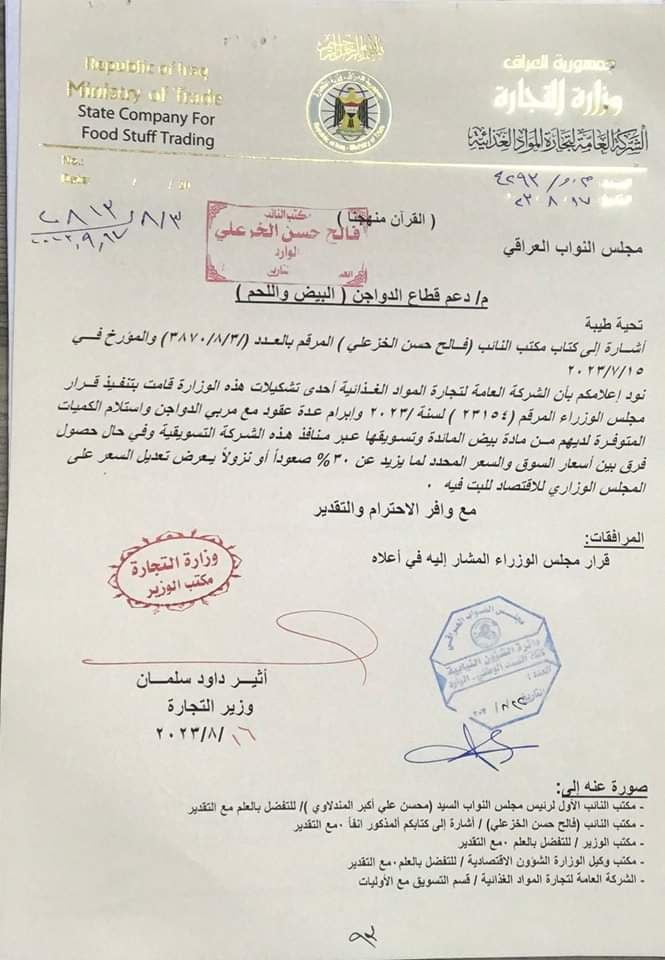 بسم الله الرحمن الرحيم
Republic of Iraq
Ministry of Trade
State Company For
Food Stuff Trading
جمهورية العراق
وزارة التجارة
الشركة العامة لتجارة المواد الغذائية
No.:
Date: / / 20
( القرآن منهجنا )
مكتب النائب
فالح حسن الخزعلي
الوارد
مجلس النواب العراقي
م/ دعم قطاع الدواجن ( البيض واللحم )
تحية طيبة
أشارة إلى كتاب مكتب النائب (فالح حسن الخزعلي ) المرقم بالعدد (٣٨٧٠/٨/٣/) والمؤرخ في
٢٠٢٣/٧/١٥
نود إعلامكم بأن الشركة العامة لتجارة المواد الغذائية أحدى تشكيلات هذه الوزارة قامت بتنفيذ قرار
مجلس الوزراء المرقم (٢٣١٥٤ ) لسنة /٢٠٢٣ وإبرام عدة عقود مع مربي الدواجن واستلام الكميات
المتوفرة لديهم من مادة بيض المائدة وتسويقها عبر منافذ هذه الشركة التسويقية وفي حال حصول
فرق بين أسعار السوق والسعر المحدد لما يزيد عن ٣٠% صعوداً أو نزولاً يعرض تعديل السعر على
المجلس الوزاري للاقتصاد للبت فيه .
مع وافر الاحترام والتقدير
المرافقات:
قرار مجلس الوزراء المشار إليه في أعلاه
وزارة التجارة
مكتب الوزير
مجلس النواب العراقي
دائرة الشؤون النيابية
العدد :
التاريخ
أثير داود سلمان
وزير التجارة
٢٠٢٣/٨/١٦
صورة عنه إلى:
- مكتب النائب الأول لرئيس مجلس النواب السيد (محسن علي أكبر المندلاوي )/ للتفضل بالعلم مع التقدير
- مكتب النائب (فالح حسن الخزعلي) / أشارة إلى كتابكم المذكور انفاً ٠مع التقدير
- مكتب الوزير / للتفضل بالعلم ٠مع التقدير
- مكتب وكيل الوزارة الشؤون الاقتصادية / للتفضل بالعلم٠مع التقدير
- الشركة العامة لتجارة المواد الغذائية / قسم التسويق مع الأوليات